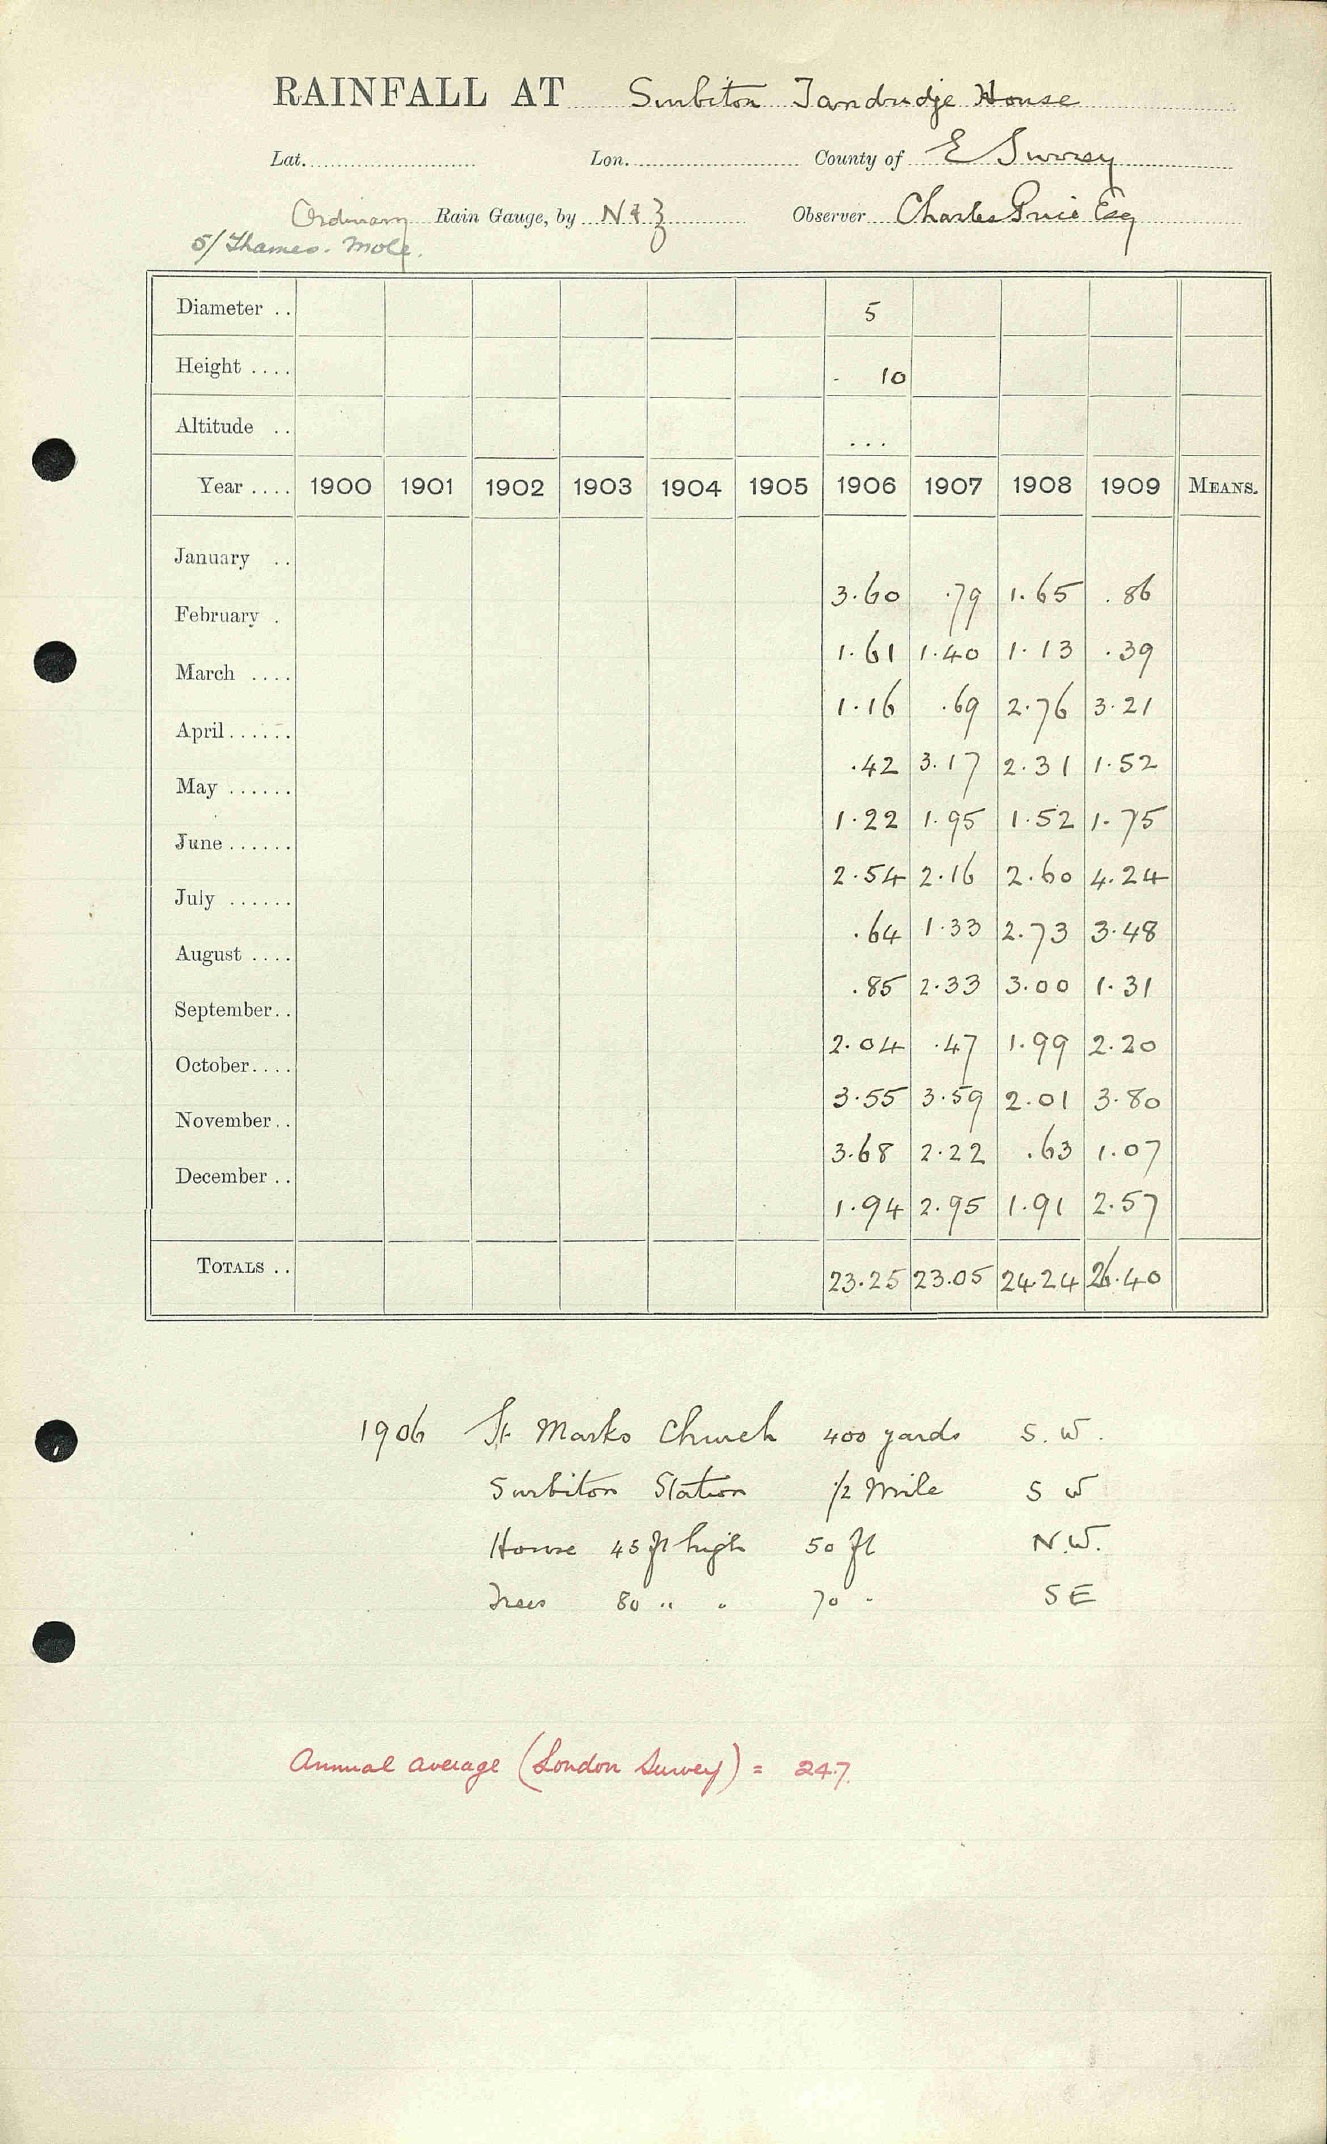 RAINFALL AT Surbiton Tandridge House
Lat. Lon. County of E Surrey
Ordinary Rain Gauge, by N & Z Observer Charles Price Esq
5/ Thames. Mole.
Diameter .. 5
Height .... - 10
Altitude .. ...
Year .... 1900 1901 1902 1903 1904 1905 1906 1907 1908 1909 MEANS.
January .. 3.60 .79 1.65 .86
February . 1.61 1.40 1.13 .39
March .... 1.16 .69 2.76 3.21
April...... .42 3.17 2.31 1.52
May ...... 1.22 1.95 1.52 1.75
June...... 2.54 2.16 2.60 4.24
July ...... .64 1.33 2.73 3.48
August .... .85 2.33 3.00 1.31
September.. 2.04 .47 1.99 2.20
October.... 3.55 3.59 2.01 3.80
November.. 3.68 2.22 .63 1.07
December .. 1.94 2.95 1.91 2.57
TOTALS .. 23.25 23.05 24.24 26.40
1906 St Marks Church 400 yards S.W.
Surbiton Station 1/2 Mile S W
House 45 ft high 50 ft N.W.
Trees 80 " " 70 " S E
Annual average (London Survey) = 24.7.